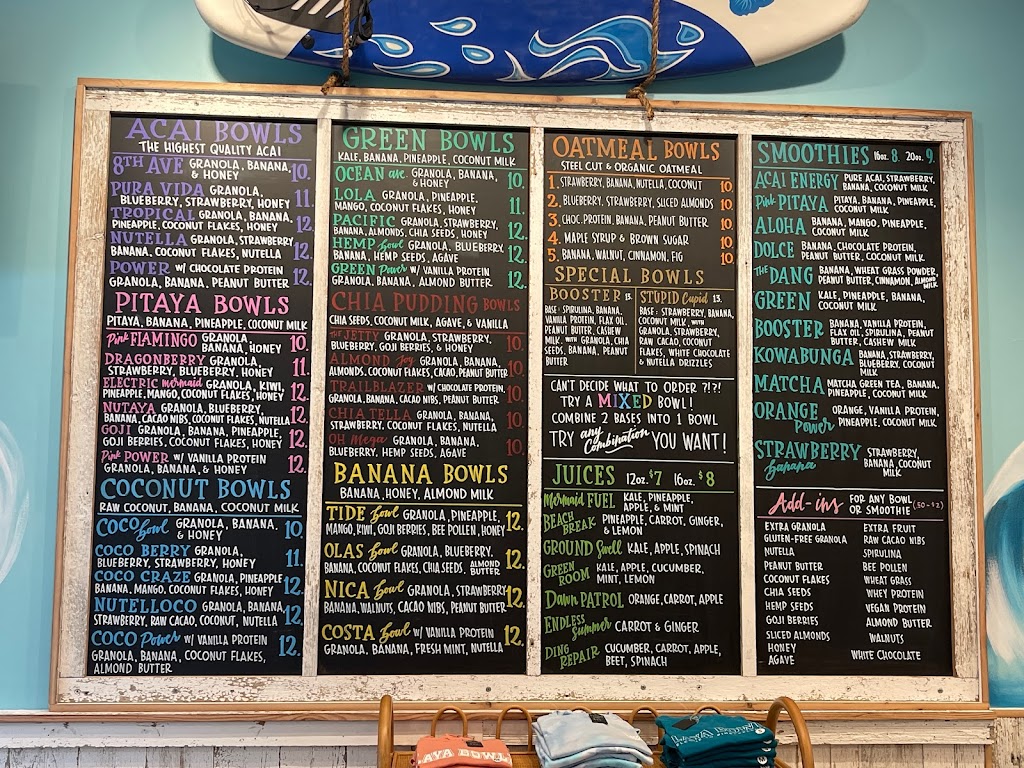 ACAI BOWLS
THE HIGHEST QUALITY ACAI
8TH AVE GRANOLA, BANANA, & HONEY 10.
PURA VIDA GRANOLA,
BLUEBERRY, STRAWBERRY, HONEY 11.
TROPICAL GRANOLA, BANANA,
PINEAPPLE, COCONUT FLAKES, HONEY 12.
NUTELLA GRANOLA, STRAWBERRY
BANANA, COCONUT FLAKES, NUTELLA 12.
POWER W/ CHOCOLATE PROTEIN
GRANOLA, BANANA, PEANUT BUTTER 12.
PITAYA BOWLS
PITAYA, BANANA, PINEAPPLE, COCONUT MILK
Pink FLAMINGO GRANOLA,
BANANA, HONEY 10.
DRAGONBERRY GRANOLA,
STRAWBERRY, BLUEBERRY, HONEY 11.
ELECTRIC mermaid GRANOLA, KIWI,
PINEAPPLE, MANGO, COCONUT FLAKES, HONEY 12.
NUTAYA GRANOLA, BLUEBERRY,
BANANA, CACAO NIBS, COCONUT FLAKES, NUTELLA 12.
GOJI GRANOLA, BANANA, PINEAPPLE,
GOJI BERRIES, COCONUT FLAKES, HONEY 12.
Pink POWER W/ VANILLA PROTEIN
GRANOLA, BANANA, & HONEY 12.
COCONUT BOWLS
RAW COCONUT, BANANA, COCONUT MILK
COCO Bowl GRANOLA, BANANA,
& HONEY 10.
COCO BERRY GRANOLA,
BLUEBERRY, STRAWBERRY, HONEY 11.
COCO CRAZE GRANOLA, PINEAPPLE
BANANA, MANGO, COCONUT FLAKES, HONEY 12.
NUTELLOCO GRANOLA, BANANA,
STRAWBERRY, RAW CACAO, COCONUT, NUTELLA 12.
COCO Power W/ VANILLA PROTEIN
GRANOLA, BANANA, COCONUT FLAKES,
ALMOND BUTTER 12.
GREEN BOWLS
KALE, BANANA, PINEAPPLE, COCONUT MILK
OCEAN ave. GRANOLA, BANANA,
& HONEY 10.
LOLA GRANOLA, PINEAPPLE,
MANGO, COCONUT FLAKES, HONEY 11.
PACIFIC GRANOLA, STRAWBERRY,
BANANA, ALMONDS, CHIA SEEDS, HONEY 12.
HEMP Bowl GRANOLA, BLUEBERRY,
BANANA, HEMP SEEDS, AGAVE 12.
GREEN Power W/ VANILLA PROTEIN
GRANOLA, BANANA, ALMOND BUTTER 12.
CHIA PUDDING BOWLS
CHIA SEEDS, COCONUT MILK, AGAVE, & VANILLA
THE JETTY GRANOLA, STRAWBERRY,
BLUEBERRY, GOJI BERRIES, & HONEY 10.
ALMOND Joy GRANOLA, BANANA,
ALMONDS, COCONUT FLAKES, CACAO, PEANUT BUTTER 10.
TRAILBLAZER W/ CHOCOLATE PROTEIN,
GRANOLA, BANANA, CACAO NIBS, PEANUT BUTTER 10.
CHIA TELLA GRANOLA, BANANA,
STRAWBERRY, COCONUT FLAKES, NUTELLA 10.
OH Mega GRANOLA, BANANA,
BLUEBERRY, HEMP SEEDS, AGAVE 10.
BANANA BOWLS
BANANA, HONEY, ALMOND MILK
TIDE Bowl GRANOLA, PINEAPPLE,
MANGO, KIWI, GOJI BERRIES, BEE POLLEN, HONEY 12.
OLAS Bowl GRANOLA, BLUEBERRY,
BANANA, COCONUT FLAKES, CHIA SEEDS, ALMOND BUTTER 12.
NICA Bowl GRANOLA, STRAWBERRY
BANANA, WALNUTS, CACAO NIBS, PEANUT BUTTER 12.
COSTA Bowl W/ VANILLA PROTEIN
GRANOLA, BANANA, FRESH MINT, NUTELLA 12.
OATMEAL BOWLS
STEEL CUT & ORGANIC OATMEAL
1. STRAWBERRY, BANANA, NUTELLA, COCONUT 10.
2. BLUEBERRY, STRAWBERRY, SLICED ALMONDS 10.
3. CHOC. PROTEIN, BANANA, PEANUT BUTTER 10.
4. MAPLE SYRUP & BROWN SUGAR 10.
5. BANANA, WALNUT, CINNAMON, FIG 10.
SPECIAL BOWLS
BOOSTER 13.
BASE: SPIRULINA, BANANA,
VANILLA PROTEIN, FLAX OIL,
PEANUT BUTTER, CASHEW
MILK. WITH GRANOLA, CHIA
SEEDS, BANANA, PEANUT
BUTTER
STUPID Cupid 13.
BASE: STRAWBERRY, BANANA,
COCONUT MILK, WITH
GRANOLA, STRAWBERRY,
RAW CACAO, COCONUT
FLAKES, WHITE CHOCOLATE
& NUTELLA DRIZZLES
CAN'T DECIDE WHAT TO ORDER ?!?!
TRY A MIXED BOWL!
COMBINE 2 BASES INTO 1 BOWL
TRY any Combination YOU WANT!
JUICES 12oz. $7 16oz. $8
Mermaid FUEL KALE, PINEAPPLE,
APPLE, & MINT
BEACH BREAK PINEAPPLE, CARROT, GINGER,
& LEMON
GROUND Swell KALE, APPLE, SPINACH
GREEN ROOM KALE, APPLE, CUCUMBER,
MINT, LEMON
Dawn PATROL ORANGE, CARROT, APPLE
ENDLESS Summer CARROT & GINGER
DING REPAIR CUCUMBER, CARROT, APPLE,
BEET, SPINACH
SMOOTHIES 16oz. 8. 20oz. 9.
ACAI ENERGY PURE ACAI, STRAWBERRY,
BANANA, COCONUT MILK
Pink PITAYA PITAYA, BANANA, PINEAPPLE,
COCONUT MILK
ALOHA BANANA, MANGO, PINEAPPLE,
COCONUT MILK
DOLCE BANANA, CHOCOLATE PROTEIN,
PEANUT BUTTER, COCONUT MILK
THE DANG BANANA, WHEAT GRASS POWDER,
PEANUT BUTTER, CINNAMON, ALMOND MILK
GREEN KALE, PINEAPPLE, BANANA,
COCONUT MILK
BOOSTER BANANA, VANILLA PROTEIN,
FLAX OIL, SPIRULINA, PEANUT
BUTTER, CASHEW MILK
KOWABUNGA BANANA, STRAWBERRY,
BLUEBERRY, COCONUT
MILK
MATCHA MATCHA GREEN TEA, BANANA,
PINEAPPLE, COCONUT MILK
ORANGE Power ORANGE, VANILLA PROTEIN,
PINEAPPLE, COCONUT MILK
STRAWBERRY Banana STRAWBERRY,
BANANA, COCONUT
MILK
Add-ins FOR ANY BOWL
OR SMOOTHIE (.50-$2)
EXTRA GRANOLA
GLUTEN-FREE GRANOLA
NUTELLA
PEANUT BUTTER
COCONUT FLAKES
CHIA SEEDS
HEMP SEEDS
GOJI BERRIES
SLICED ALMONDS
HONEY
AGAVE
EXTRA FRUIT
RAW CACAO NIBS
SPIRULINA
BEE POLLEN
WHEAT GRASS
WHEY PROTEIN
VEGAN PROTEIN
ALMOND BUTTER
WALNUTS
WHITE CHOCOLATE
PLAYA BOWLS